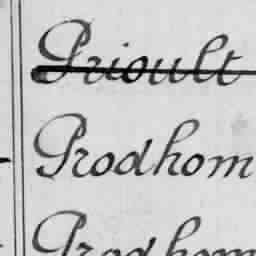 Prioult
Prodhom
Prodhom